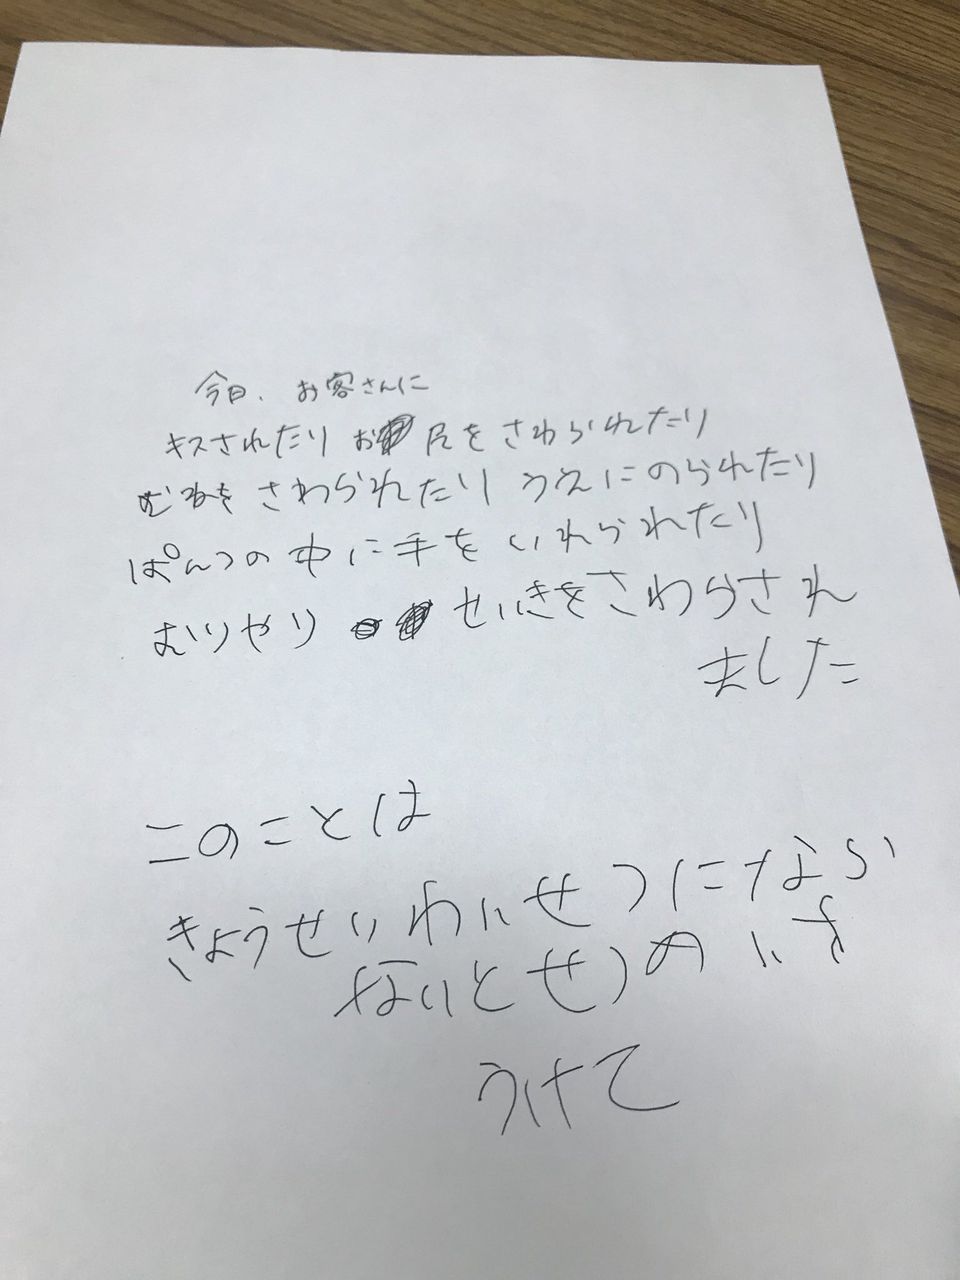 今日、お客さんに
キスされたり お尻をさわられたり
むねをさわられたり うえにのられたり
ぱんつの中に手をいれられたり
むりやり せいきをさわらされ
ました
このことは
きょうせいわいせつになら
ないとせつめいを
うけて